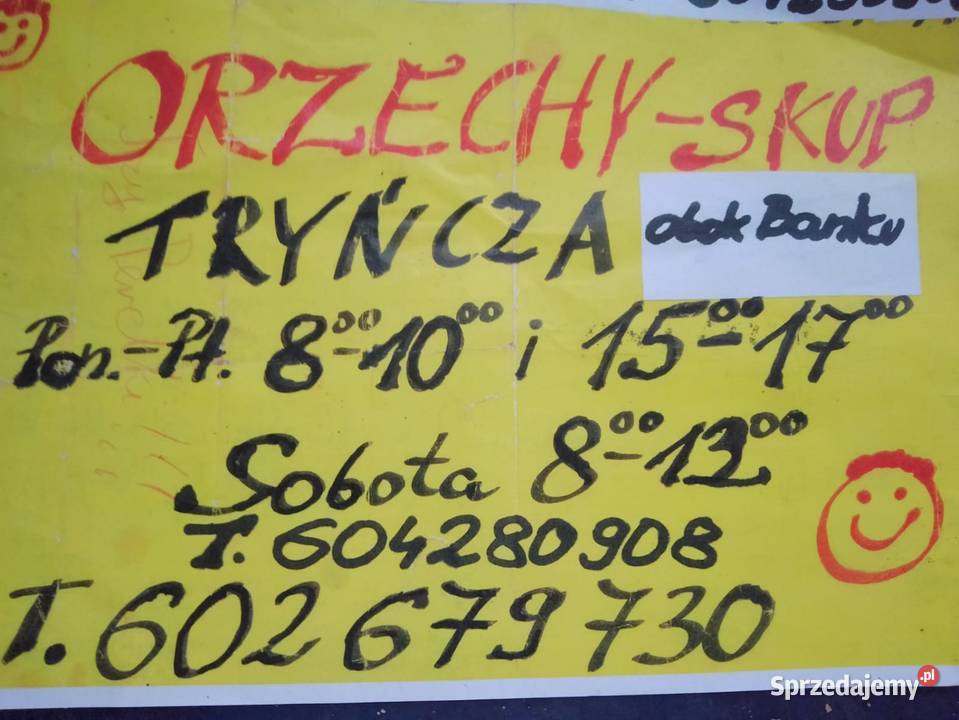 ORZECHY-SKUP
TRYŃCZA obok Banku
Pon.-Pt. 8⁰⁰-10⁰⁰ i 15⁰⁰-17⁰⁰
Sobota 8⁰⁰-12⁰⁰
T. 604280908
T. 602 679 730
Sprzedajemy.pl